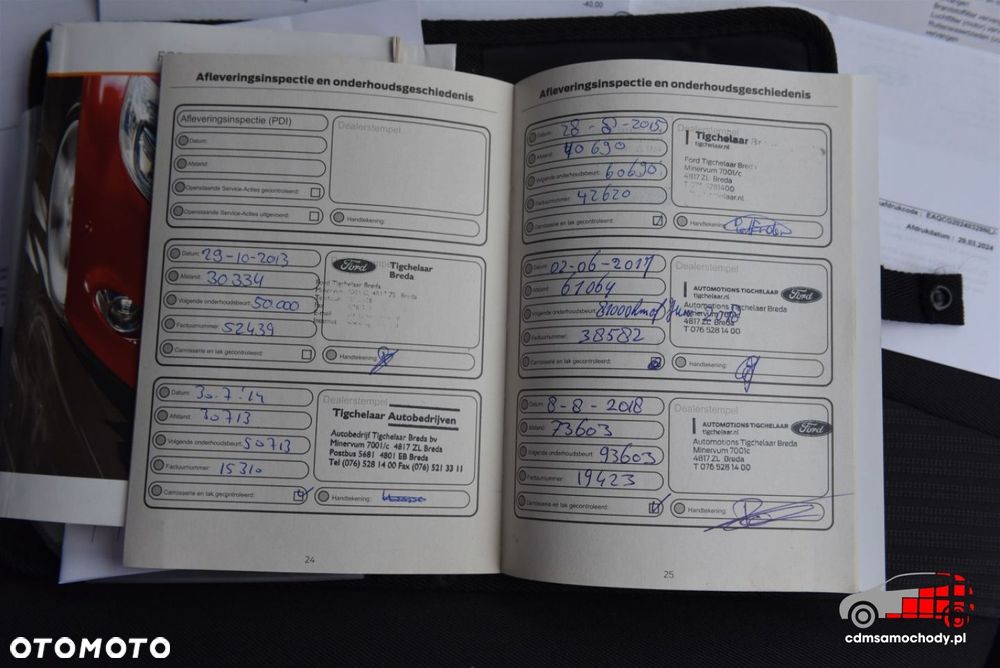 -40,00
Brandstoffilter
Luchtfilter (motor)
vervangen
Afleveringsinspectie en onderhoudsgeschiedenis
Afleveringsinspectie (PDI)
Datum:
Afstand:
Openstaande Service-Acties gecontroleerd:
Openstaande Service-Acties uitgevoerd:
Dealerstempel
Handtekening:
Datum: 29-10-2013
Afstand: 30334
Volgende onderhoudsbeurt: 50.000
Factuurnummer: 52439
Carrosserie en lak gecontroleerd:
Ford Tigchelaar
Breda
Ford Tigchelaar Breda
Minervum 4817 ZL Breda
Handtekening:
Datum: 30.7.'14
Afstand: 30713
Volgende onderhoudsbeurt: 50713
Factuurnummer: 15310
Carrosserie en lak gecontroleerd:
Dealerstempel
Tigchelaar Autobedrijven
Autobedrijf Tigchelaar Breda bv
Minervum 7001/c 4817 ZL Breda
Postbus 5681 4801 EB Breda
Tel (076) 528 14 00 Fax (076) 521 33 11
Handtekening:
24
Afleveringsinspectie en onderhoudsgeschiedenis
Datum: 28-8-2015
Afstand: 40690
Volgende onderhoudsbeurt: 60690
Factuurnummer: 42620
Carrosserie en lak gecontroleerd:
Dealerstempel
Tigchelaar
tigchelaar.nl
Ford Tigchelaar Breda
Minervum 7001/c
4817 ZL Breda
Handtekening:
Datum: 02-06-2017
Afstand: 61064
Volgende onderhoudsbeurt: 2018
Factuurnummer: 38582
Carrosserie en lak gecontroleerd:
Dealerstempel
AUTOMOTIONS TIGCHELAAR Ford
tigchelaar.nl
Automotions Tigchelaar Breda
Minervum 7001c
4817 ZL Breda
T 076 528 14 00
Handtekening:
Datum: 8-8-2018
Afstand: 73603
Volgende onderhoudsbeurt: 93603
Factuurnummer: 19423
Carrosserie en lak gecontroleerd:
Dealerstempel
AUTOMOTIONS TIGCHELAAR Ford
tigchelaar.nl
Automotions Tigchelaar Breda
Minervum 7001c
4817 ZL Breda
T 076 528 14 00
Handtekening:
25
Afdrukdatum : 29.03.2024
OTOMOTO
cdmsamochody.pl